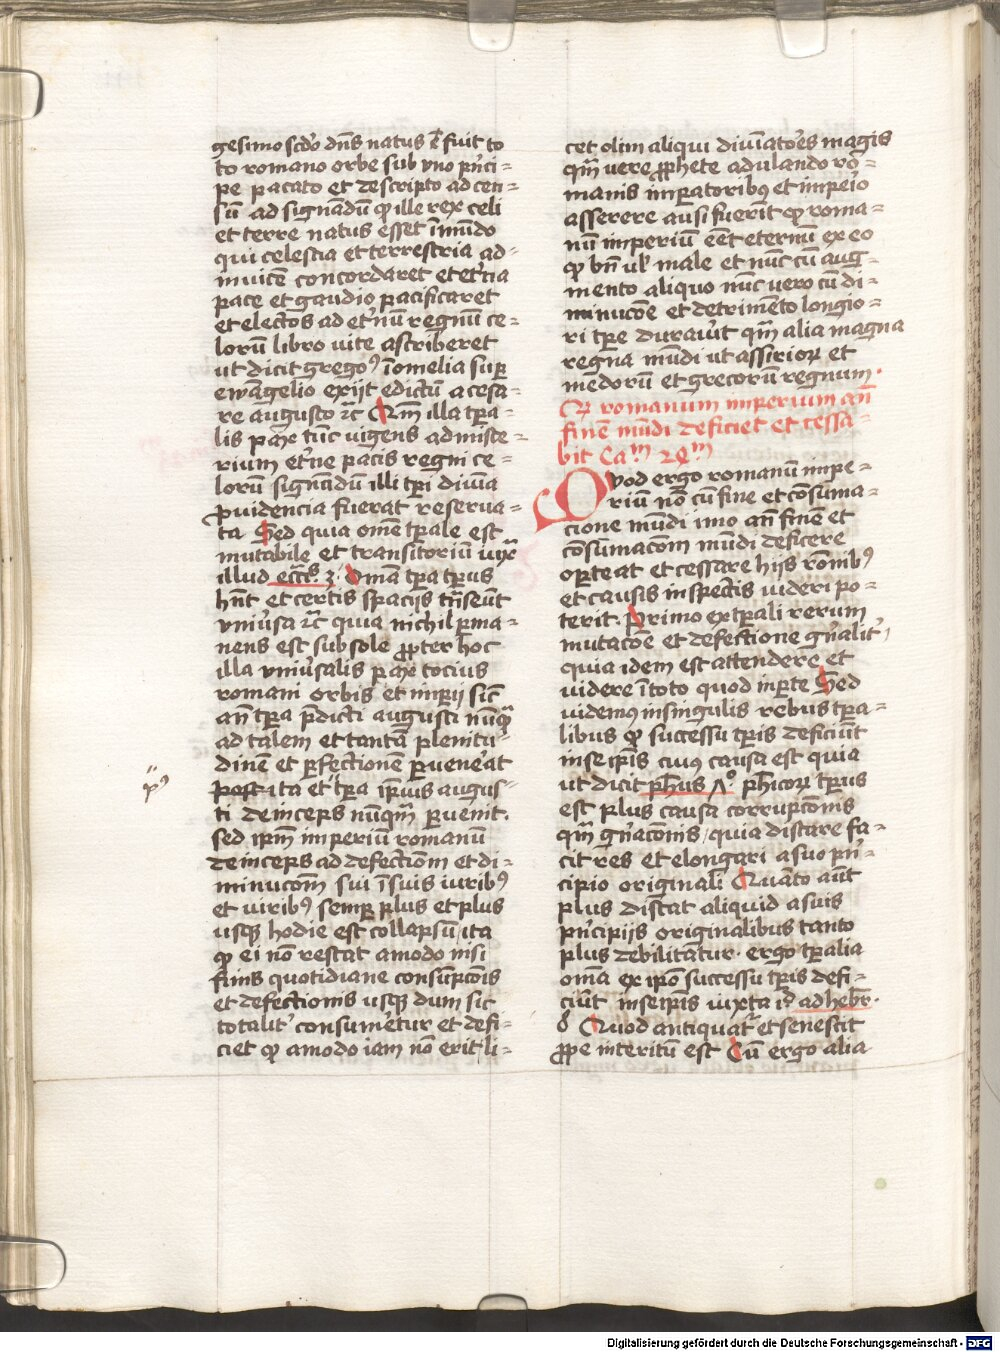 gesimo scd̄o dn̄s natus ē fuit to
to romano orbe sub vno pn̄ci-
pe pacato et descripto ad cen-
sū ad signādū ꝙ ille rex celi
et terre natus esset ī mūdo
qui celestia et terrestria ad-
inuicē concordaret et et̄na
pace et gaudio pacificaret
et electos ad et̄nū regnū ce-
lorū libro vite ascriberet
ut dicit grego⁹ ī omelia sup̄
ewāgelio exijt edictū a cesa-
re augusto ⁊c Qm̄ illa tp̄a-
lis pax tūc vigens ad miste-
rium et̄ne pacis regni ce-
lorū signādū illi tp̄i diuīa
ꝓuidencia fuerat reserua-
ta Sed quia om̄e tp̄ale est
mutabile et transitoriū iuxͣ
illud eccl̄s 3 Om̄a tp̄a tp̄us
hn̄t et certis spacijs trā̄seūt
vniūsa ⁊c quia nichil p̄ma-
nens est sub sole ꝓpter hoc
illa vniūsalis pax tocius
romani orbis et imp̄ij sic̄
an̄ tp̄a p̄dicti augusti nūqͣ
ad talem et tantā plenitu
dinē et p̄fectionē p̄uene̓at
post ita et tp̄a ip̄ius augus-
ti deinceps nūqͣm p̄uenit.
sed ip̄m imperiū romanū
deinceps ad defectiōm et di-
minucōm sui ī suis iurib⁹
et virib⁹ semp̄ plus et plus
usqꝫ hodie est collapsū ita
ꝙ ei nō restat amodo nisi
finis quotidiane consūpcōis
et defectionis usqꝫ dum sic
totalit̓ consumetur et defi-
ciet ꝙ amodo iam nō erit li-
cet olim aliqui diuīatōes magis
qͣm vere ꝓphete adulando ro-
manis imp̄atorib⁹ et imp̄io
asserere ausi fuerīt ꝙ roma-
nū imperiū eēt eternū ex eo
ꝙ bn̄ vl̓ male et nūc cū aug-
mento aliquo nūc vero cū di-
minucōe et detrimēto longio-
ri tp̄e durauīt qͣm alia magna
regna mūdi ut assirioꝝ et
medorū et grecorū regnum.
Ꝙ romanum imperium an̄
finē mūdi deficiet et cessa-
bit Caᵐ 24ᵐ
Quod ergo romanū impe-
riū nō cū fine et cōsuma-
cione mūdi imo an̄ finē et
cōsumacōm mūdi deficere
oporteat et cessare hijs rōnib⁹
et causis inspectis videri po-
terit. Primo ex tp̄ali rerum
mutacōe et defectione gn̄alit̓
quia idem est attendere et
videre ī toto quod in p̄te Sed
videmus in singulis rebus tp̄a-
libus ꝙ successu tp̄is deficiūt
in seip̄is cuius causa est quia
ut dicit ph̄us 4º phicoꝝ tp̄us
est plus causa corrupcōnis
qͣm gn̄acōnis, quia distare fa-
cit res et elongari a suo pn̄-
cipio originali Quāto aūt
plus distat aliquid a suis
pn̄cipijs originalibus tanto
plus debilitātur. ergo tp̄alia
om̄a ex ip̄o successu tp̄is defi-
ciūt in seip̄is iuxta id̓ ad hebr̄.
8 Quod antiquat̓ et senescit
ꝓpe interitū est Cū ergo alia
Digitalisierung gefördert durch die Deutsche Forschungsgemeinschaft - DFG